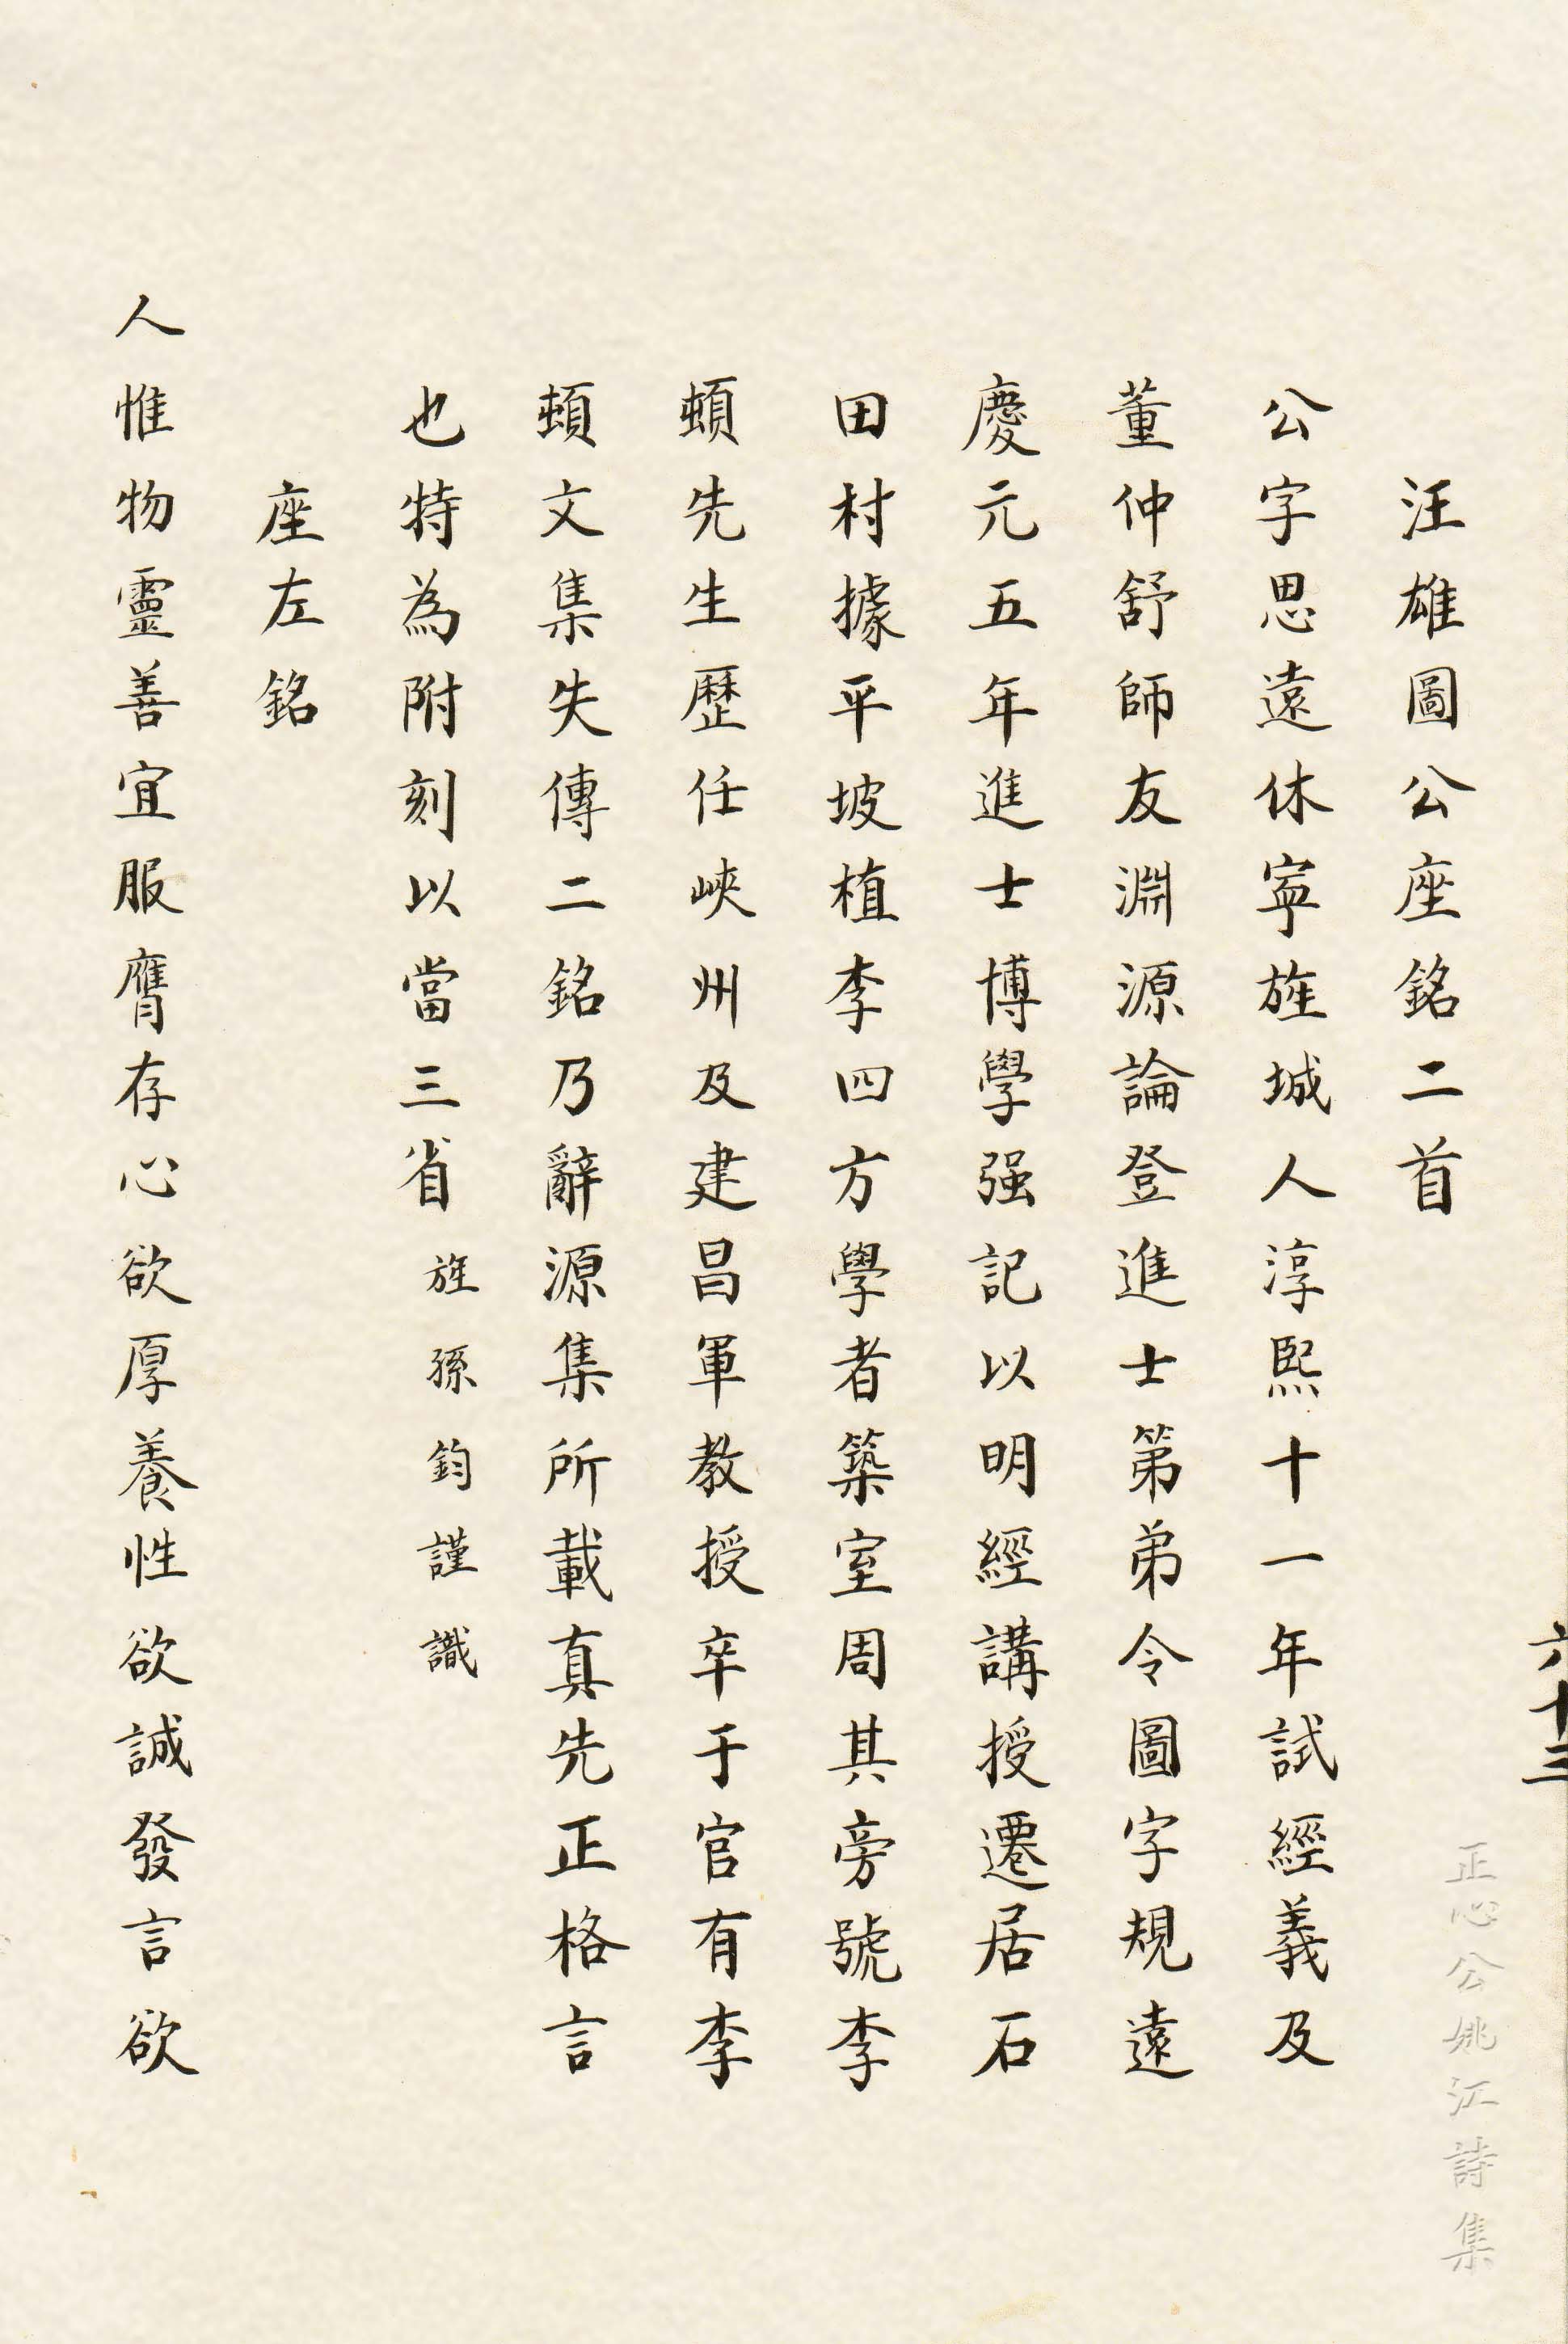 六十三
汪雄圖公座銘二首
公字思遠休寧旌城人淳熙十一年試經義及
董仲舒師友淵源論登進士第弟令圖字規遠
慶元五年進士博學强記以明經講授遷居石
田村據平坡植李四方學者築室周其旁號李
頓先生歷任峽州及建昌軍教授卒于官有李
頓文集失傳二銘乃辭源集所載真先正格言
也特為附刻以當三省 旌孫鈞謹識
座左銘
人惟物靈善宜服膺存心欲厚養性欲誠發言欲
正心公姚江詩集